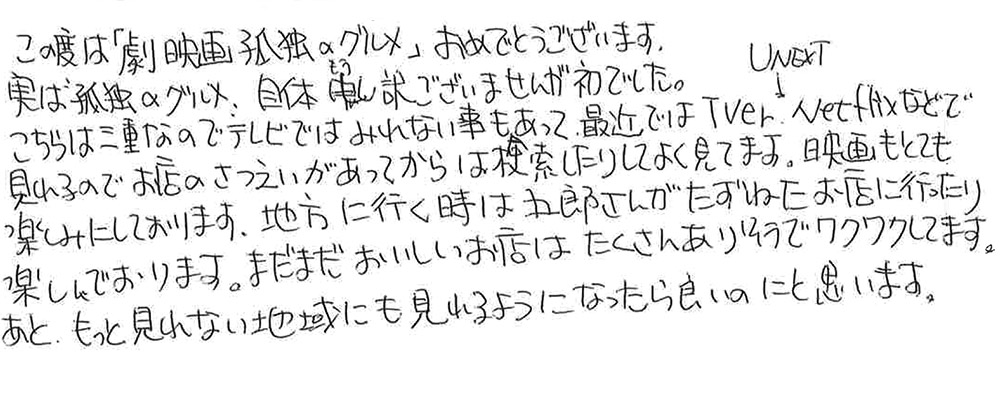 この度は「劇映画 孤独のグルメ」おめでとうございます。
実は"孤独のグルメ、自体 申し訳ございませんが初でした。
もう
UNEXT
↓
こちらは三重なのでテレビではみれない事もあって、最近ではTVer、Netflixなどで
見れるのでお店のさつえいがあってからは検索したりしてよく見てます。映画もとても
楽しみにしております、地方に行く時は五郎さんがたずねたお店に行ったり
楽しんでおります。まだまだおいしいお店はたくさんありそうでワクワクしてます。
あと、もっと見れない地域にも見れるようになったら良いのにと思います。